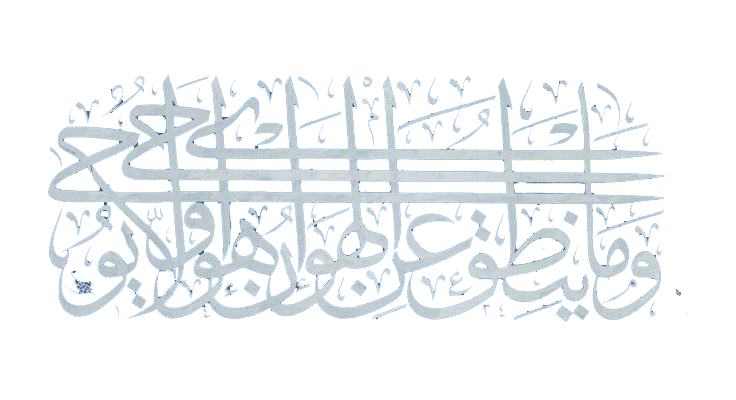 وما ينطق عن الهوى ان هو الا وحى يوحى